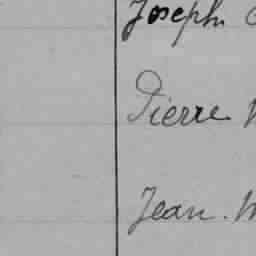 Joseph
Pierre
Jean. M